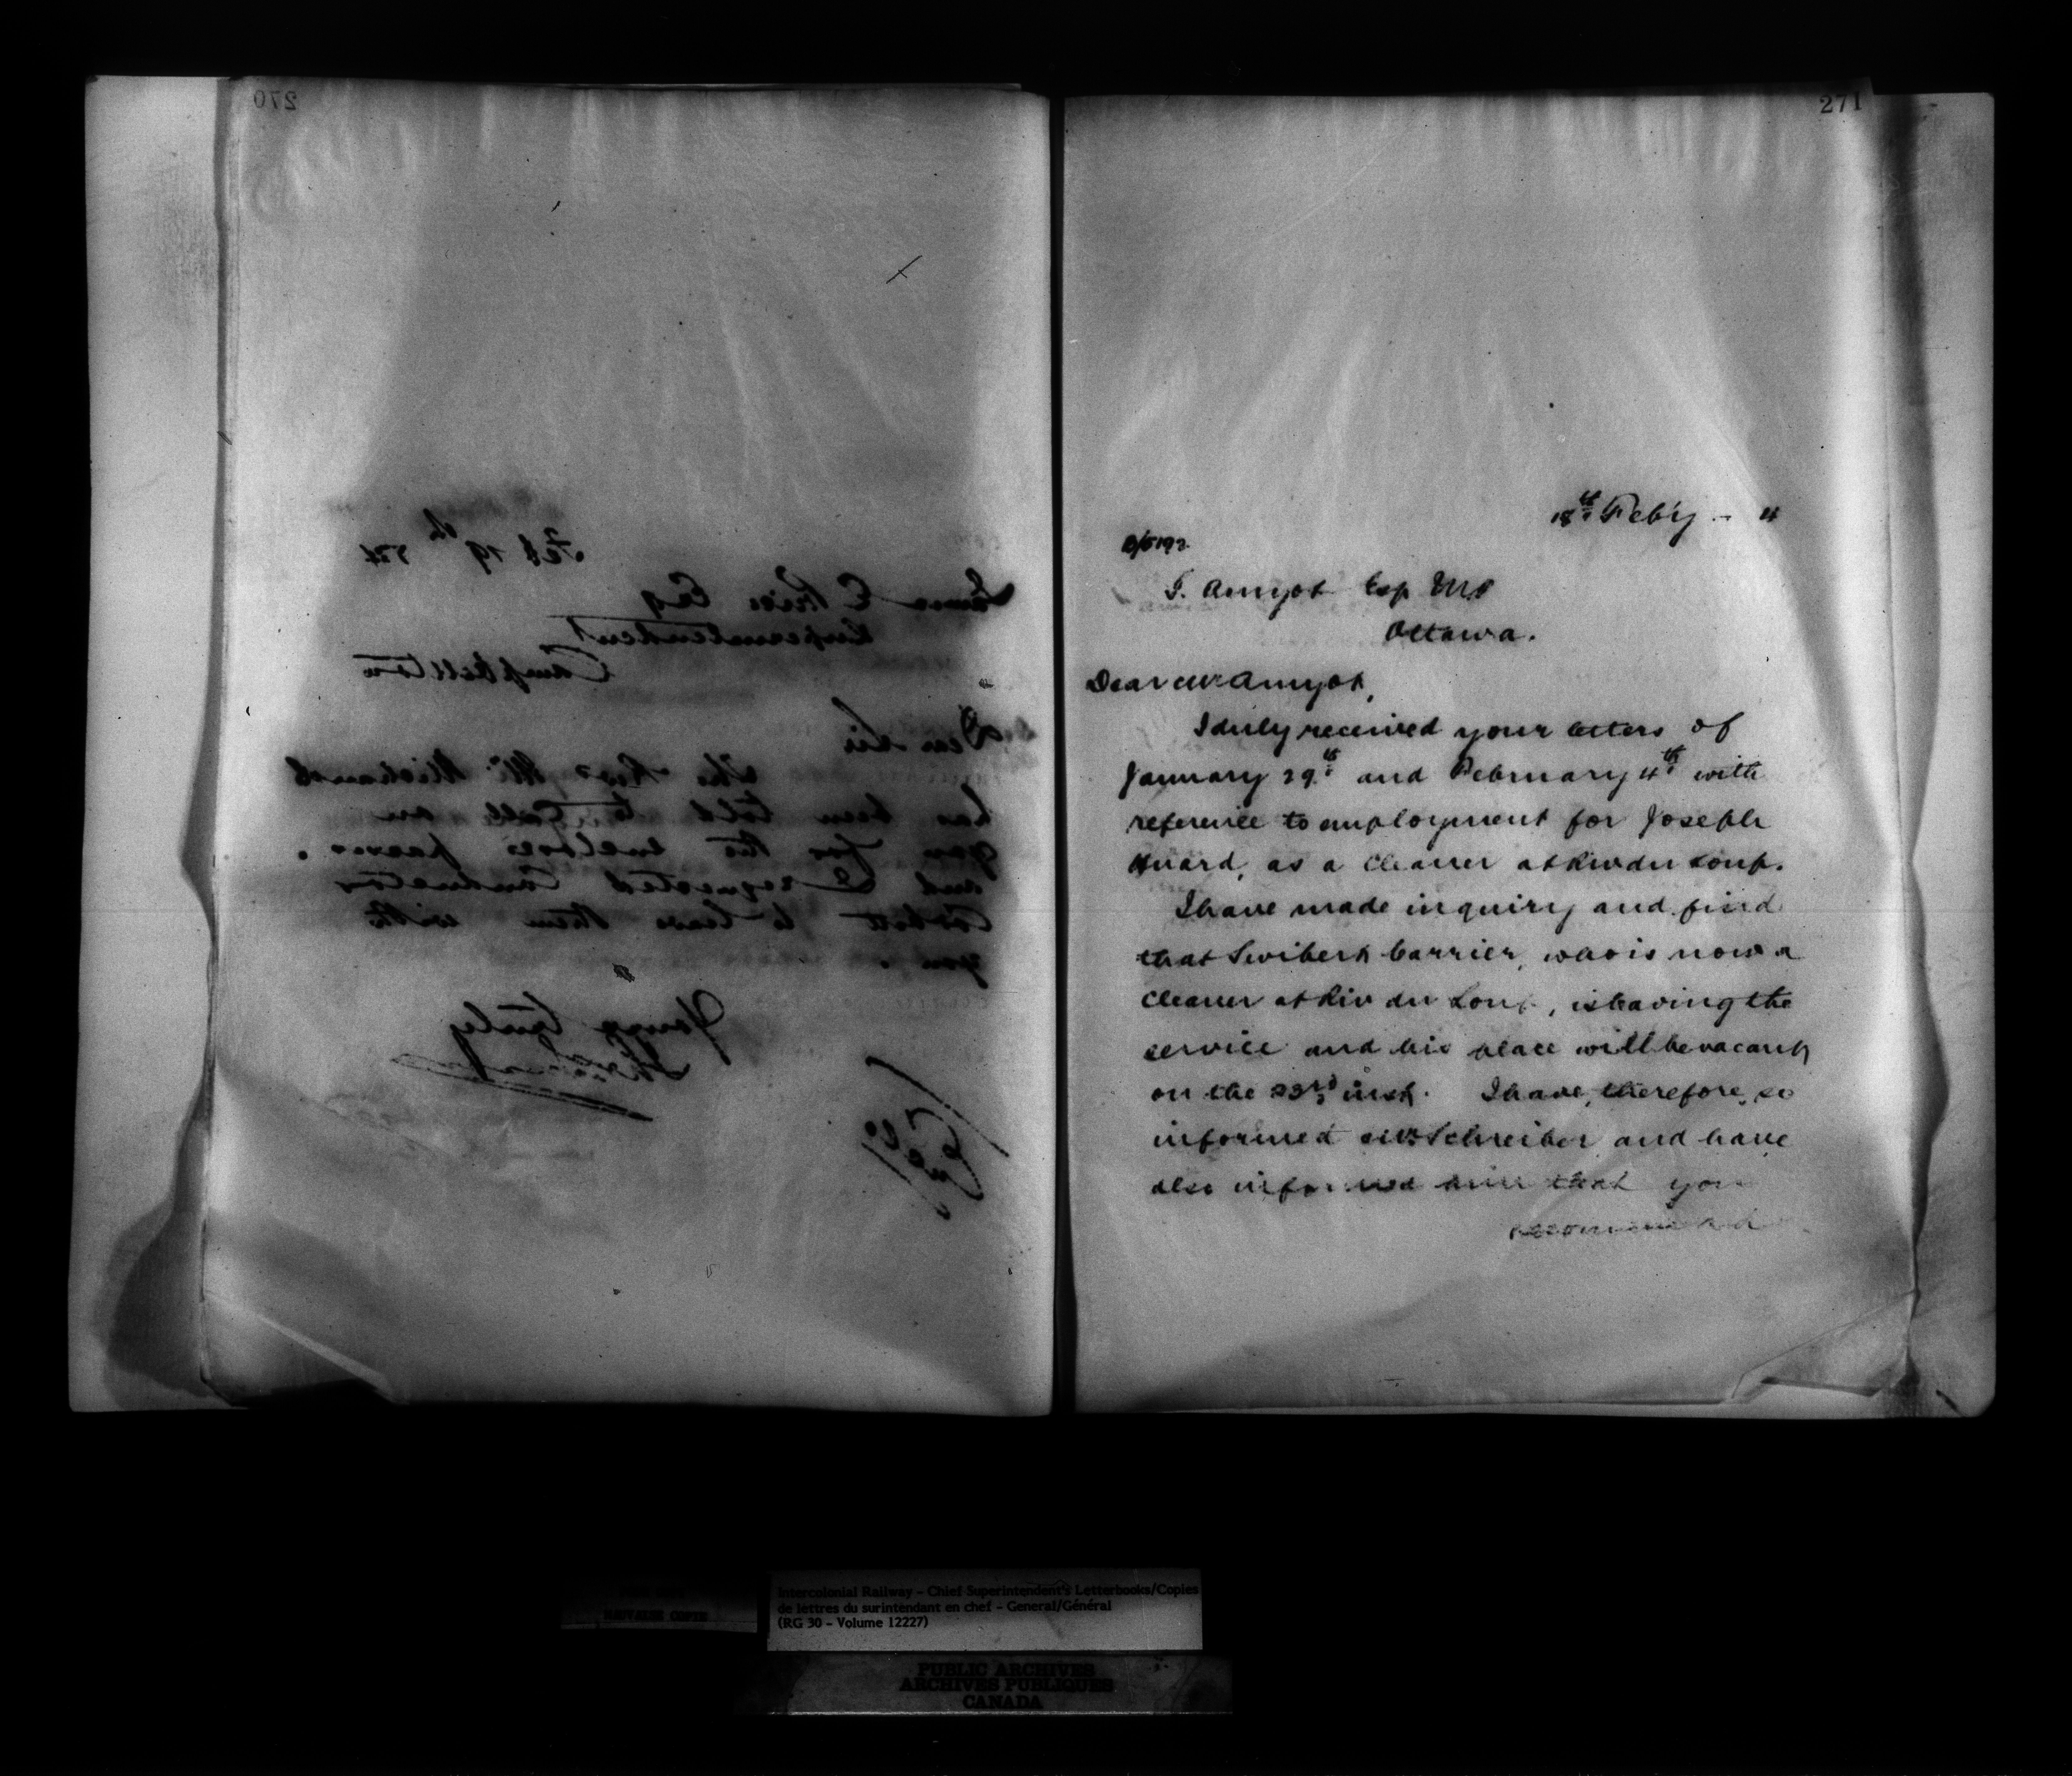 270
Feb 19th
James E Price Esq
Superintendent
Campbellton
Dear Sir
The Revd Mr Michaud
has been told to call on
you for the enclosed passes.
and I requested Conductor
Corbett to leave them with
you.
Yours truly
Encl
271
18th Feb'y - 4
Amyot Esq MP
Ottawa.
Dear Mr Amyot,
I duly received your letters of
January 29th and February 4th with
reference to employment for Joseph
Huard, as a cleaner at Riv du Loup.
I have made inquiry and find
that Carrier, who is now a
cleaner at Riv du Loup, is leaving the
service and his place will be vacant
on the 23rd inst. I have, therefore, so
informed Mr Schreiber and have
also informed him that you
recommend
POOR COPY
MAUVAISE COPIE
Intercolonial Railway – Chief Superintendent's Letterbooks/Copies
de lettres du surintendant en chef – General/Général
(RG 30 – Volume 12227)
PUBLIC ARCHIVES
ARCHIVES PUBLIQUES
CANADA